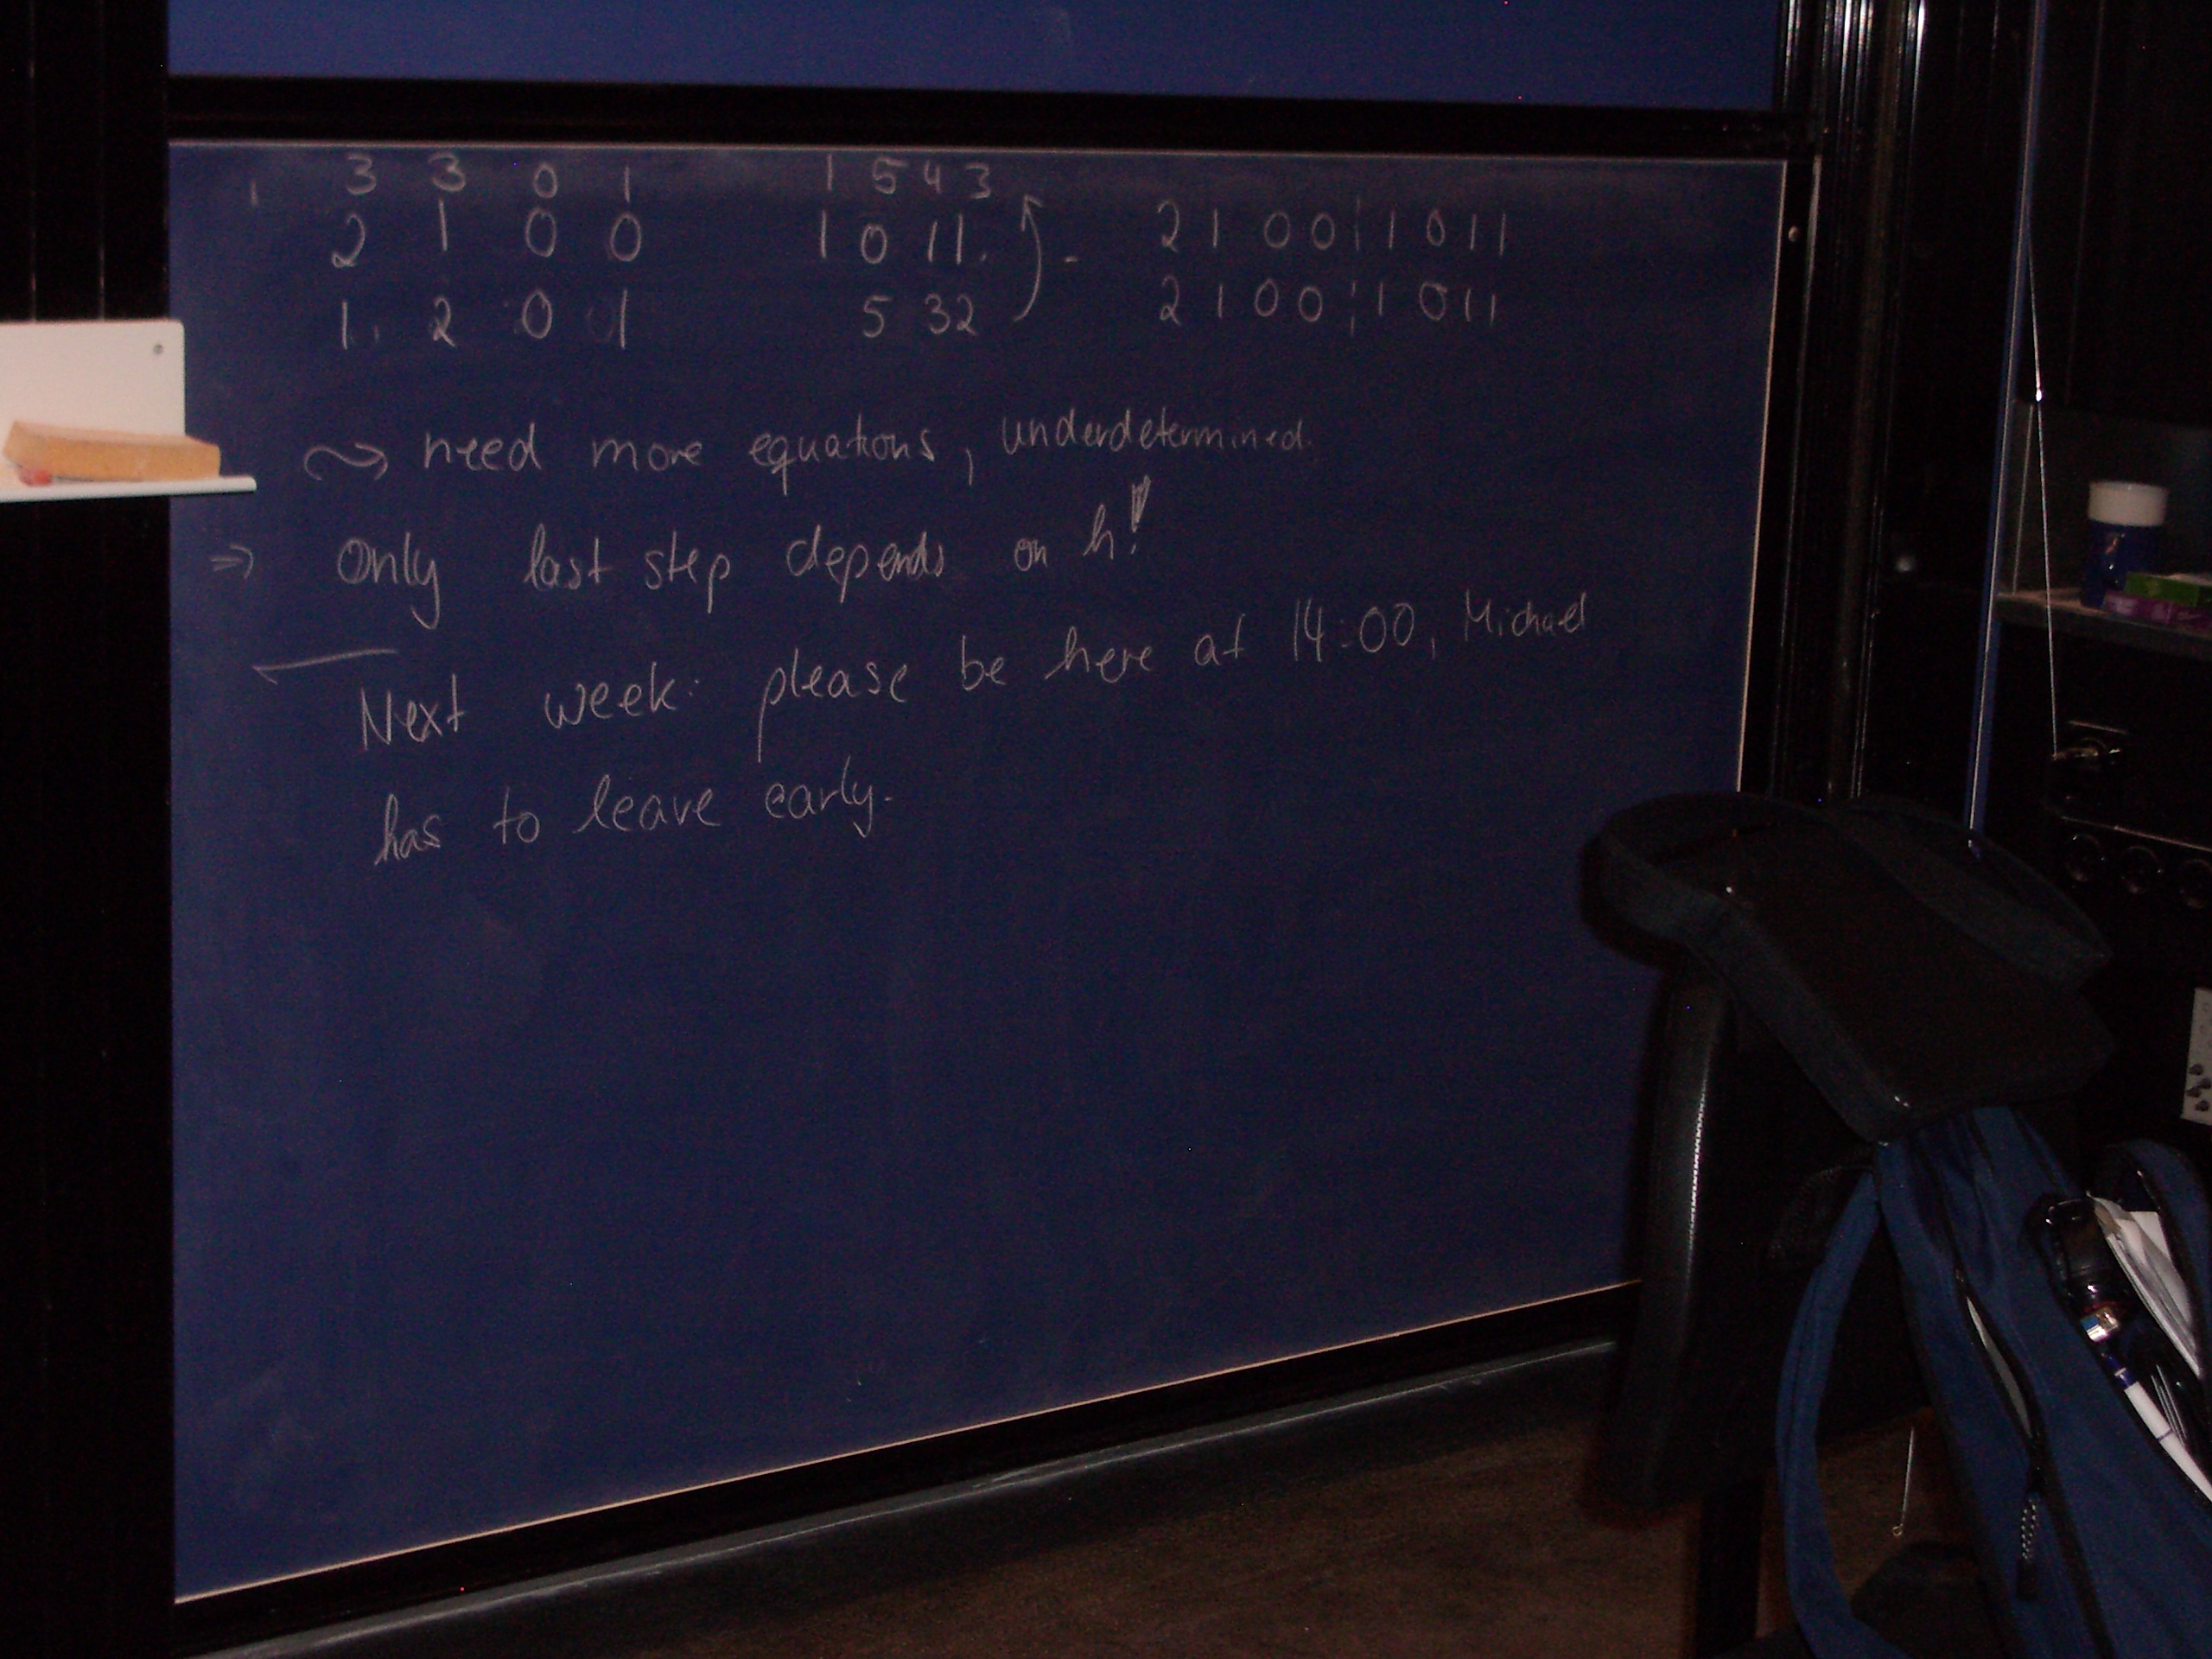 3 3 0 1 1 5 4 3
2 1 0 0 1 0 1 1. - 2 1 0 0 ¦ 1 0 1 1
1. 2 0 1 5 3 2 2 1 0 0 ¦ 1 0 1 1
⤳ need more equations, underdetermined.
⇒ only last step depends on h!
Next week: please be here at 14:00, Michael
has to leave early.